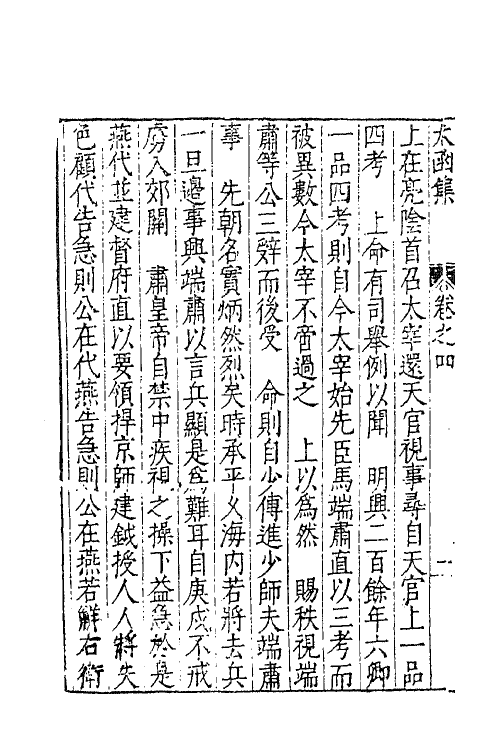 太函集 卷之四 二
上在亮陰首召太宰還天官視事尋自天官上一品
四考 上命有司舉例以聞 明興二百餘年六卿
一品四考則自今太宰始先臣馬端肅直以三考而
被異數今太宰不啻過之 上以爲然 賜秩視端
肅等公三辭而後受 命則自少傅進少師夫端肅
事 先朝名實炳然烈矣時承平乂海内若將去兵
一旦邊事興端肅以言兵顯是爲難耳自庚戍不戒
虜入郊關 肅皇帝自禁中疾視之操下益急於是
燕代並建督府直以要領捍京師建鉞授人人將失
色顧代告急則公在代燕告急則公在燕若鮮右衛